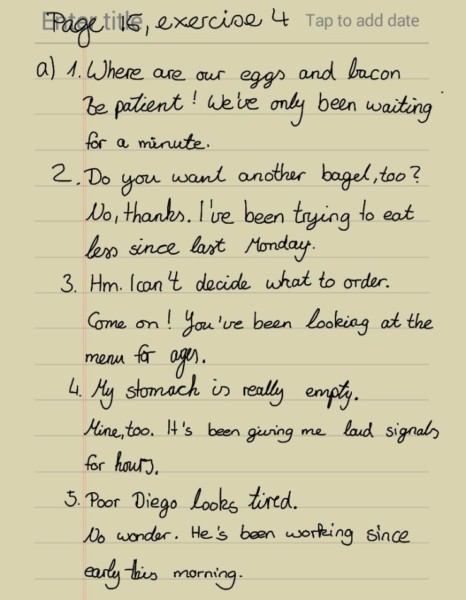 Page 15, exercise 4 Tap to add date
a) 1. Where are our eggs and bacon
Be patient! We've only been waiting
for a minute.
2. Do you want another bagel, too?
No, thanks. I've been trying to eat
less since last Monday.
3. Hm. I can't decide what to order.
Come on! You've been looking at the
menu for ages.
4. My stomach is really empty.
Mine, too. It's been giving me loud signals
for hours.
5. Poor Diego looks tired.
No wonder. He's been working since
early this morning.